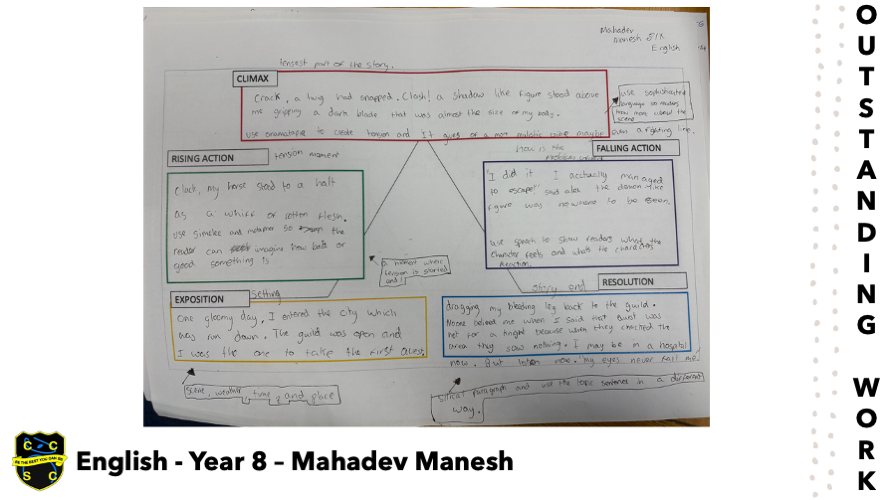 Mahadev
Manesh 8/X
English
tensest part of the story.
CLIMAX
Crack, a twig had snapped. Clash! a shadow like figure stood above
me gripping a dark blade that was almost the size of my body.
use to create tension and It gives of a more realistic maybe even a fighting line.
use sophisticated
language so readers
know more about the
scene
how is the
problem
RISING ACTION
tension moment
Clack, my horse stood to a halt
as a whiff of rotten flesh.
use similes and metaphor so the
reader can imagine how bad or
good something is
a moment where
tension is started
and!
FALLING ACTION
"I did it I acctually managed
to escape" said alex the demon like
figure was nowhere to be seen.
use speech to show readers what the
character feels and whats the characters
reaction.
EXPOSITION
setting
One gloomy day, I entered the city which
was run down. The guild was open and
I was the one to take the first quest.
Scene, weather, time, and place
RESOLUTION
story end
dragging my bleeding leg back to the guild.
Noone belived me when I said that quest was
not for a because when they checked the
area they saw nothing. I may be in a hospital
now. But listen now. "my eyes never fail me."
short paragraph and use the topic sentence in a different
way.
C C
BE THE BEST YOU CAN BE
S C
English - Year 8 – Mahadev Manesh
OUTSTANDING WORK